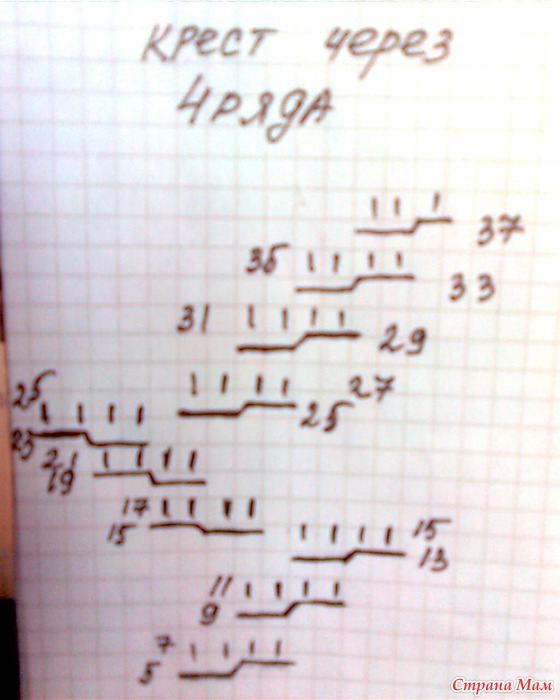 крест через
4 ряда
37
35
33
31
29
27
25
25
23
21
19
17
15
15
13
11
9
7
5
Страна Мам